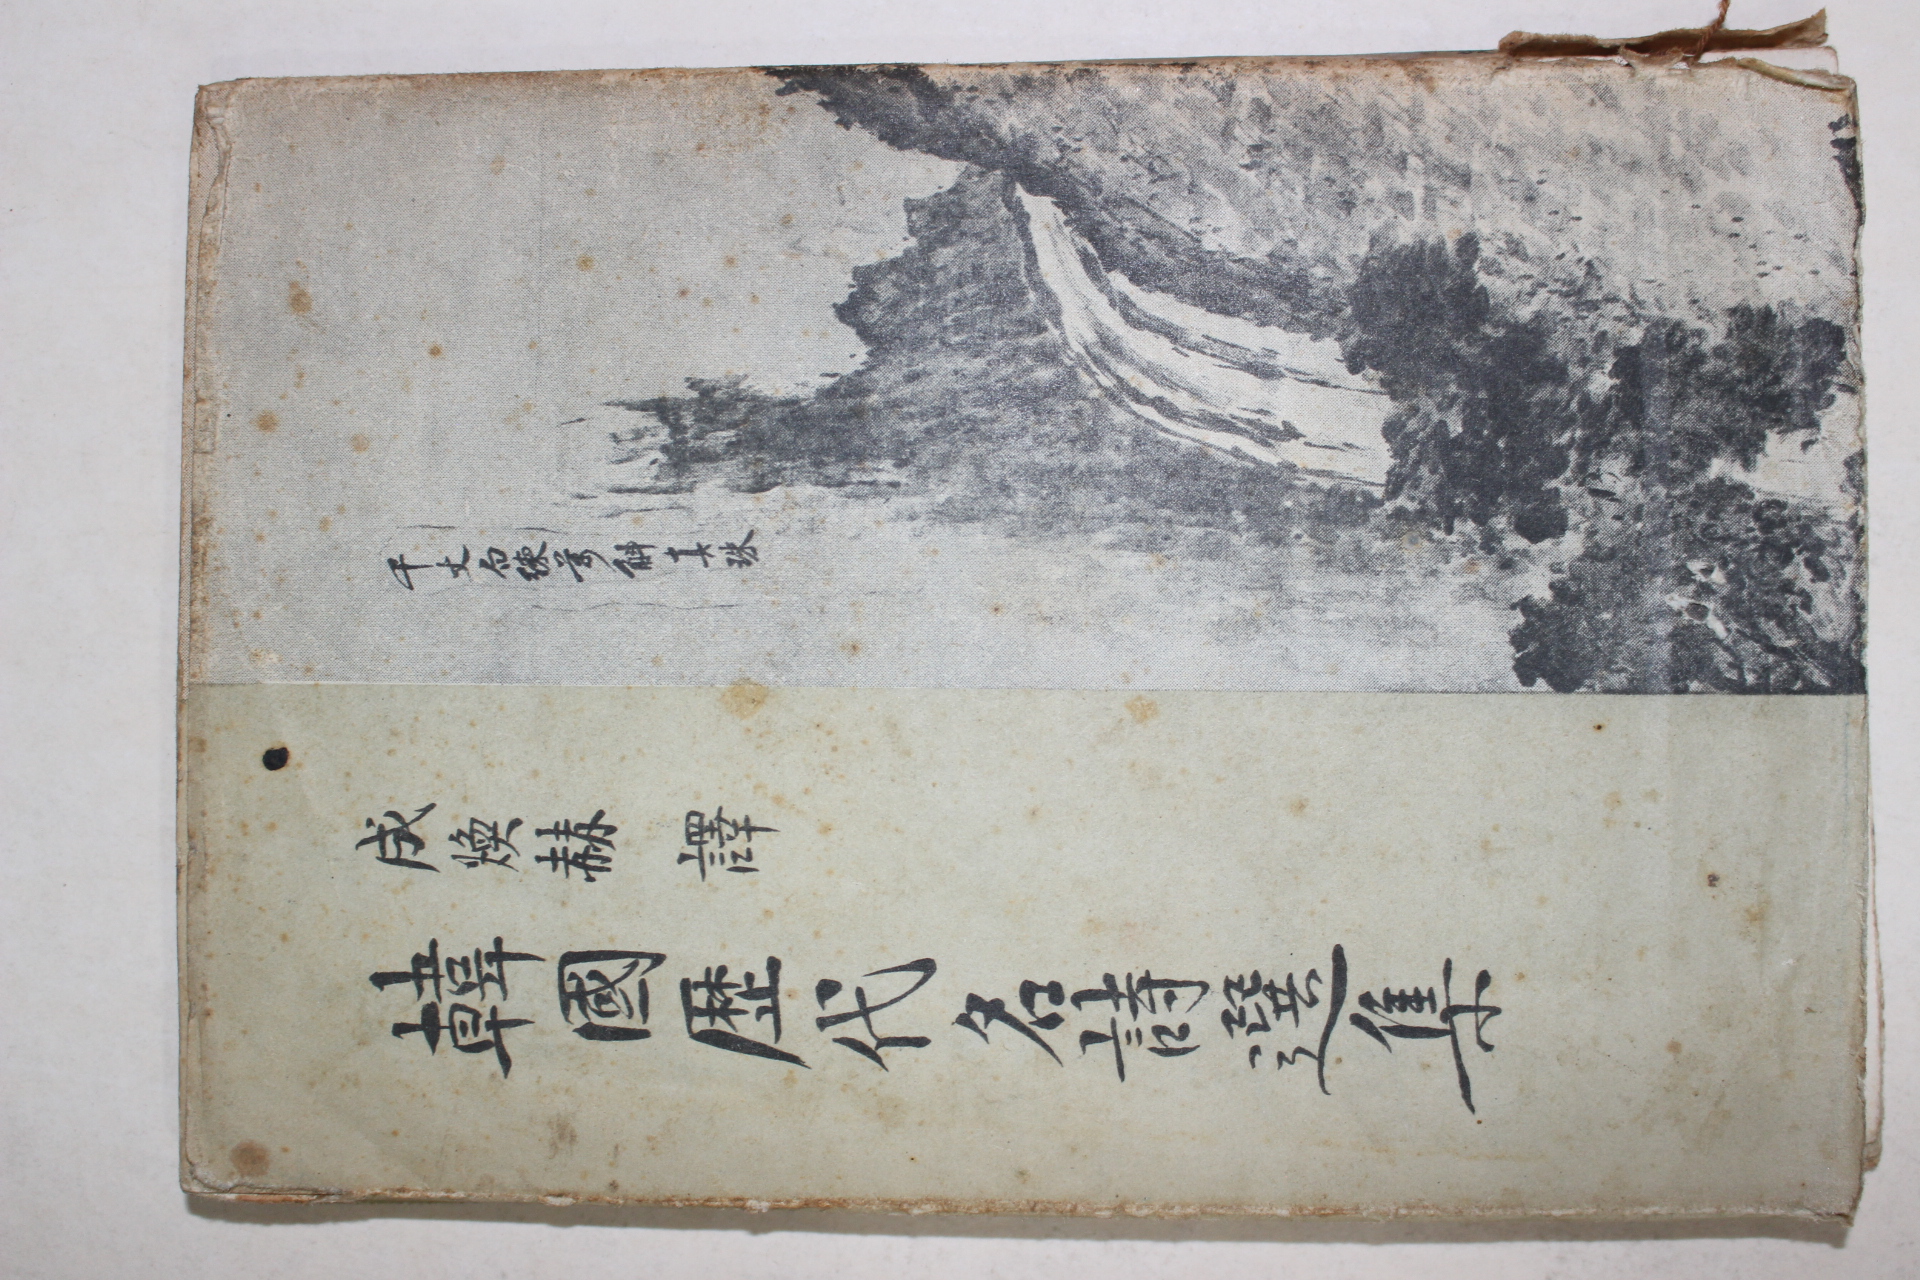 千丈白練萬斛真珠
成煥赫 譯
韓國歷代名詩選集